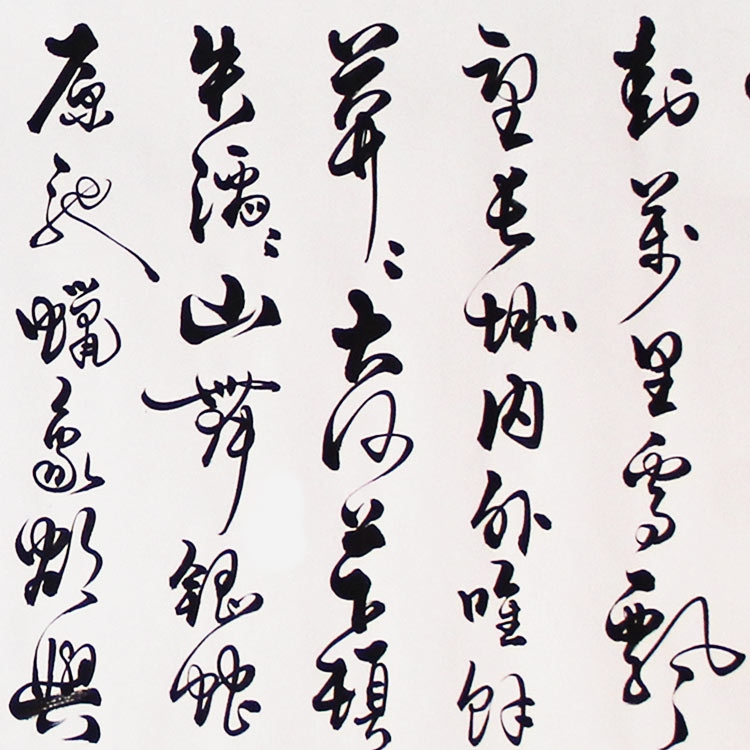 封萬里雪飄
望長城内外唯餘
莽〻大河上下頓
失滔〻山舞銀蛇
原馳蠟象欲與